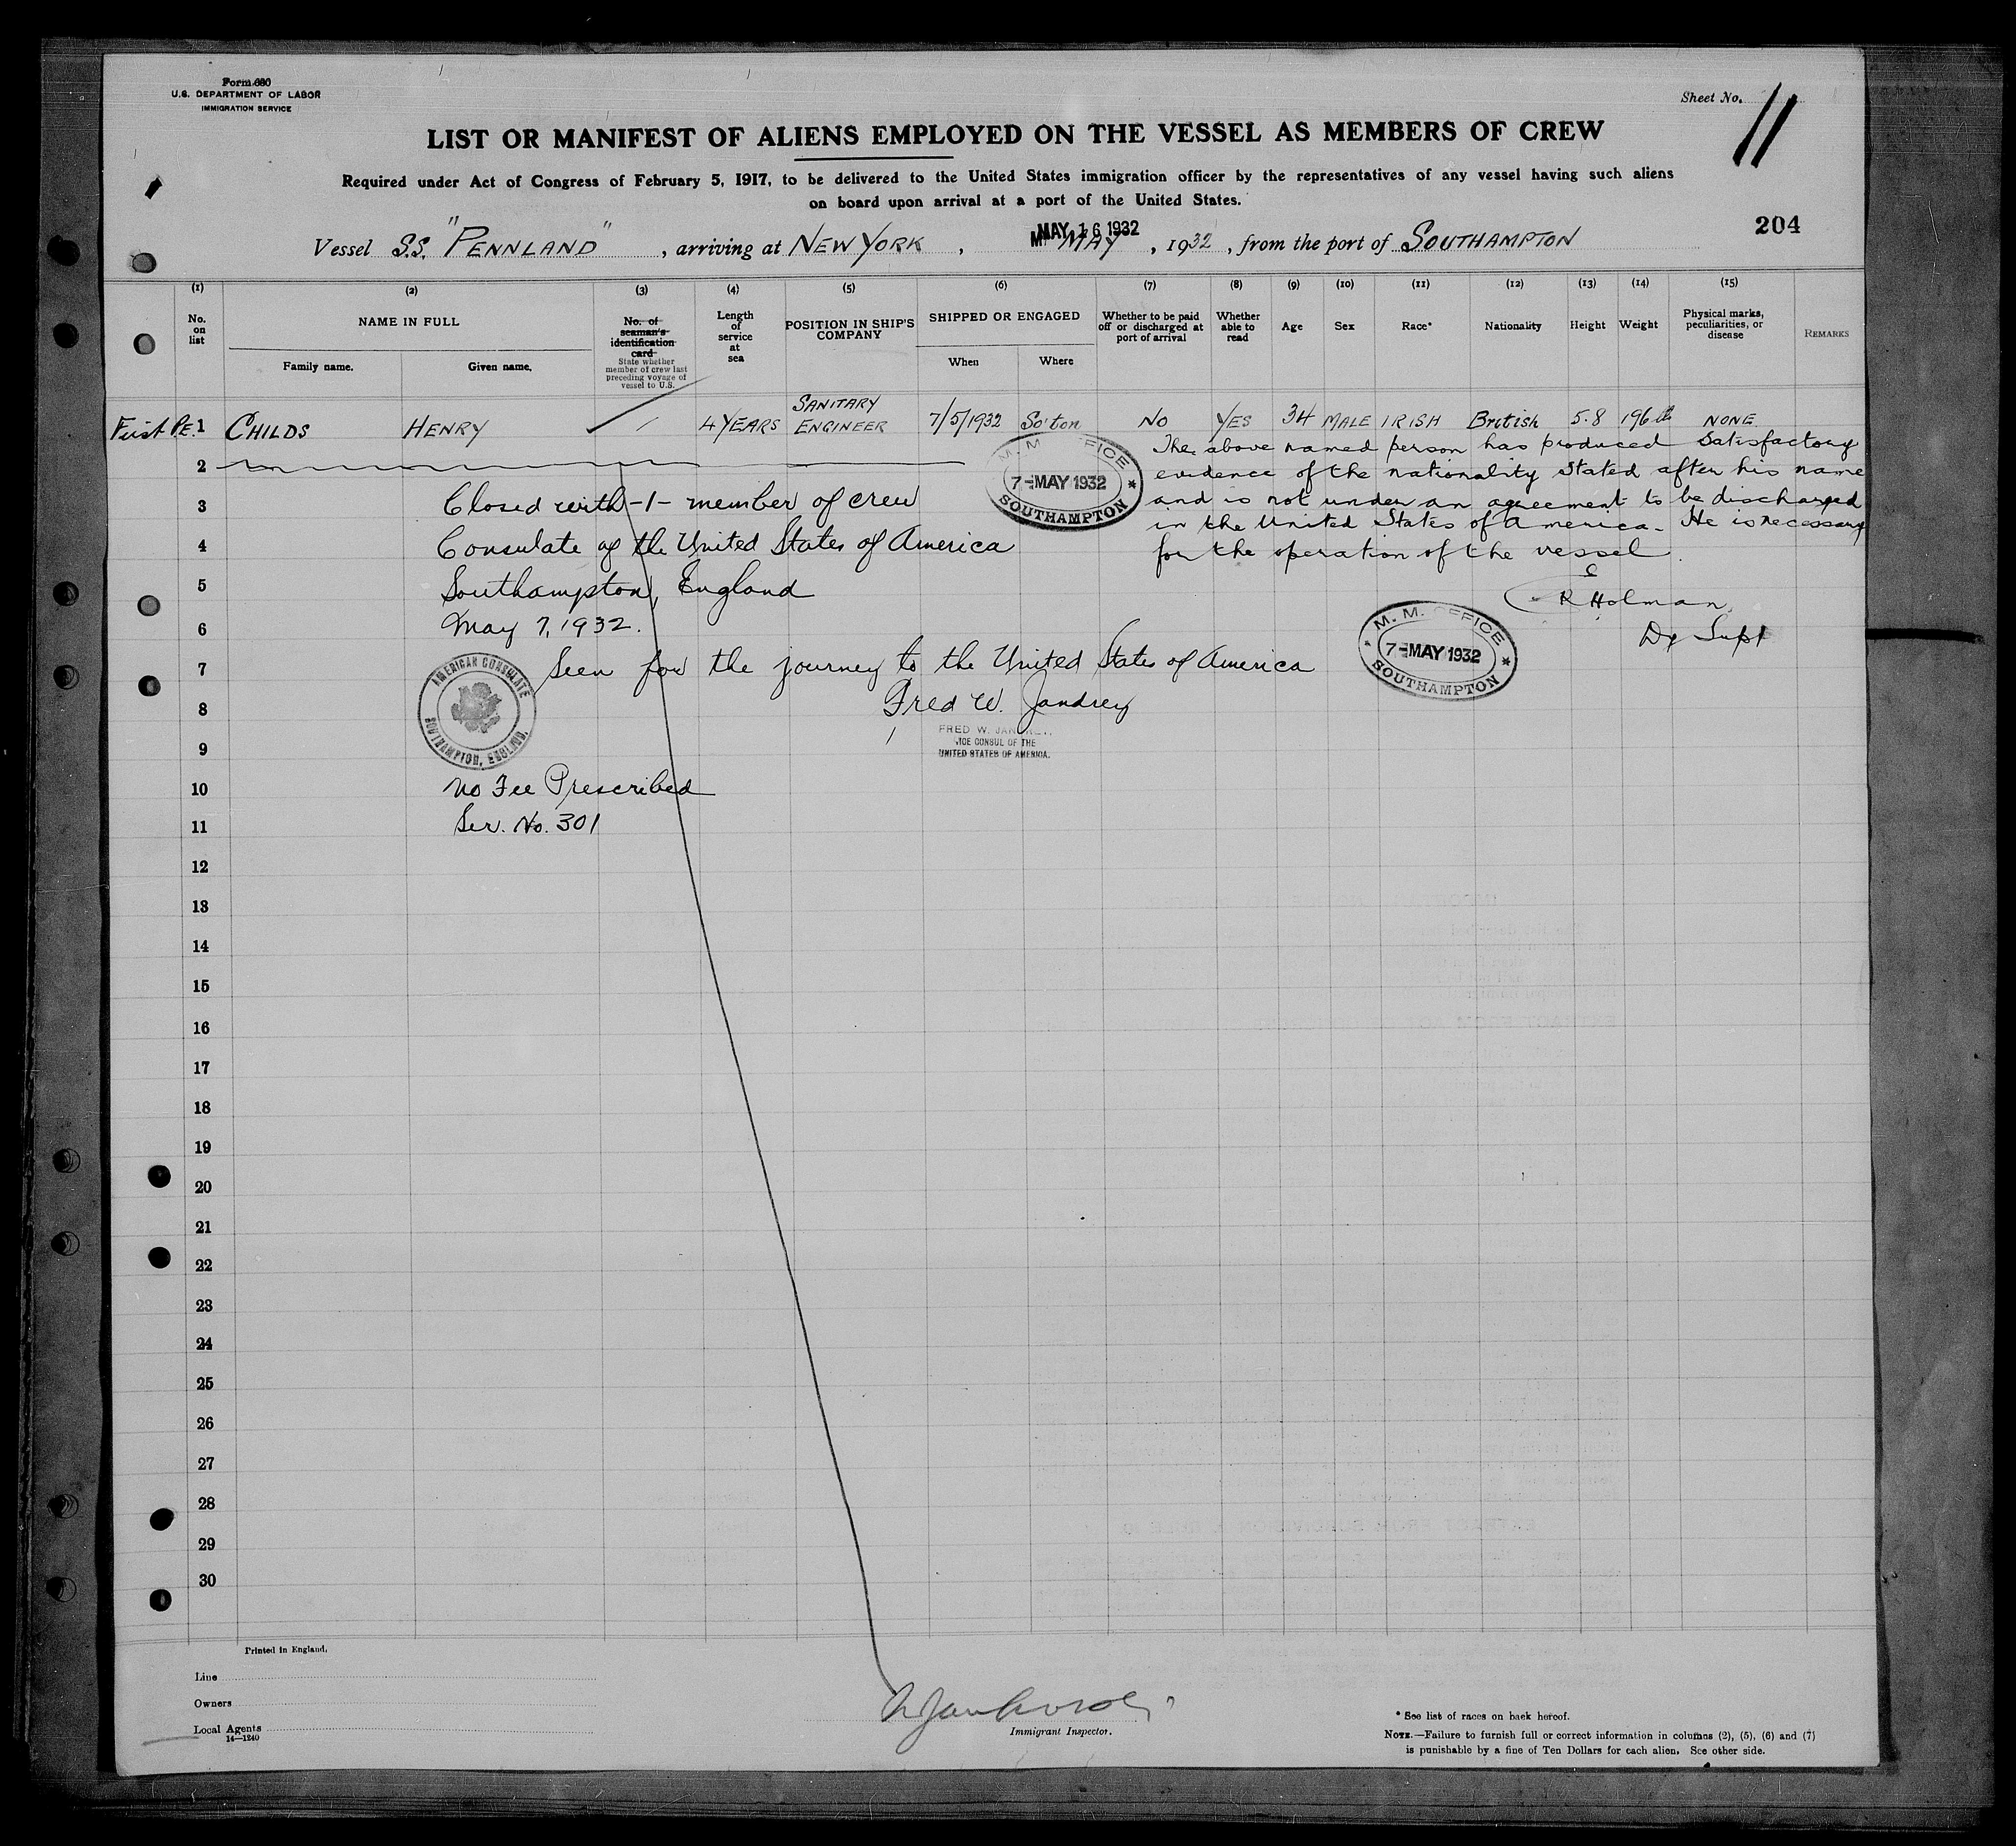 Form 680
U.S. DEPARTMENT OF LABOR
IMMIGRATION SERVICE
Sheet No. 11
LIST OR MANIFEST OF ALIENS EMPLOYED ON THE VESSEL AS MEMBERS OF CREW
Required under Act of Congress of February 5, 1917, to be delivered to the United States immigration officer by the representatives of any vessel having such aliens
on board upon arrival at a port of the United States.
204
MAY 16 1932
Vessel S.S. "PENNLAND", arriving at NEW YORK, MAY, 1932, from the port of SOUTHAMPTON
(1) (2) (3) (4) (5) (6) (7) (8) (9) (10) (11) (12) (13) (14) (15)
No. on list
NAME IN FULL
Family name.
Given name.
No. of seaman's identification card
State whether member of crew last preceding voyage of vessel to U.S.
Length of service at sea
POSITION IN SHIP'S COMPANY
SHIPPED OR ENGAGED
When
Where
Whether to be paid off or discharged at port of arrival
Whether able to read
Age
Sex
Race*
Nationality
Height
Weight
Physical marks, peculiarities, or disease
REMARKS
First P.E. 1 CHILDS HENRY / 4 YEARS SANITARY ENGINEER 7/5/1932 So'ton No YES 34 MALE IRISH British 5.8 196 lb NONE
The above named person has produced satisfactory
evidence of the nationality stated after his name
and is not under an agreement to be discharged
in the United States of America. He is necessary
for the operation of the vessel.
R Holman
Dy Supt
M. M. OFFICE
7-MAY 1932
SOUTHAMPTON
M. M. OFFICE
7-MAY 1932
SOUTHAMPTON
2
3 Closed with -1- member of crew
4 Consulate of the United States of America
5 Southampton, England
6 May 7, 1932.
7 Seen for the journey to the United States of America
8 Fred W. Jandrey
AMERICAN CONSULATE
SOUTHAMPTON, ENGLAND.
FRED W. JANDREY
VICE CONSUL OF THE
UNITED STATES OF AMERICA.
9
10 No Fee Prescribed
11 Ser. No. 301
12
13
14
15
16
17
18
19
20
21
22
23
24
25
26
27
28
29
30
Printed in England.
Line
Owners
Local Agents
14—1240
Immigrant Inspector.
* See list of races on back hereof.
NOTE.—Failure to furnish full or correct information in columns (2), (5), (6) and (7)
is punishable by a fine of Ten Dollars for each alien. See other side.